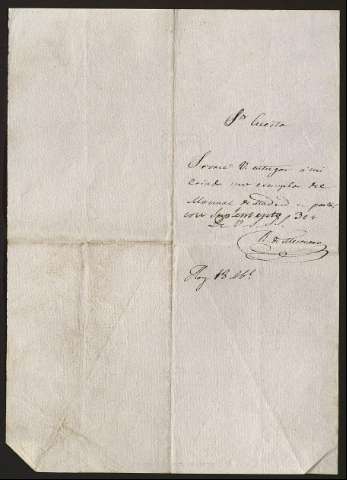 Sr Cuesta
Sirvase V. entregar a mi
criado un exemplar del
Manual de Madrid en pasta
con Suplemento
R. de Mesonero
Hoy 13 Dbe